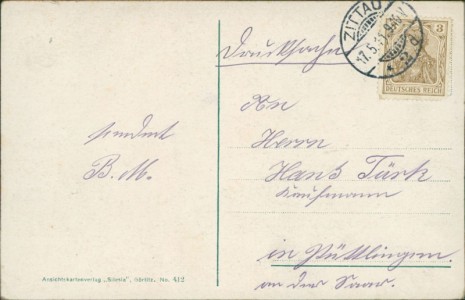 ZITTAU
17.5.11.
3
DEUTSCHES REICH
Drucksache
An
Herrn
Hans Türk
Kaufmann
in Püttlingen
an der Saar.
sendet
B. M.
Ansichtskartenverlag „Silesia", Görlitz. No. 412